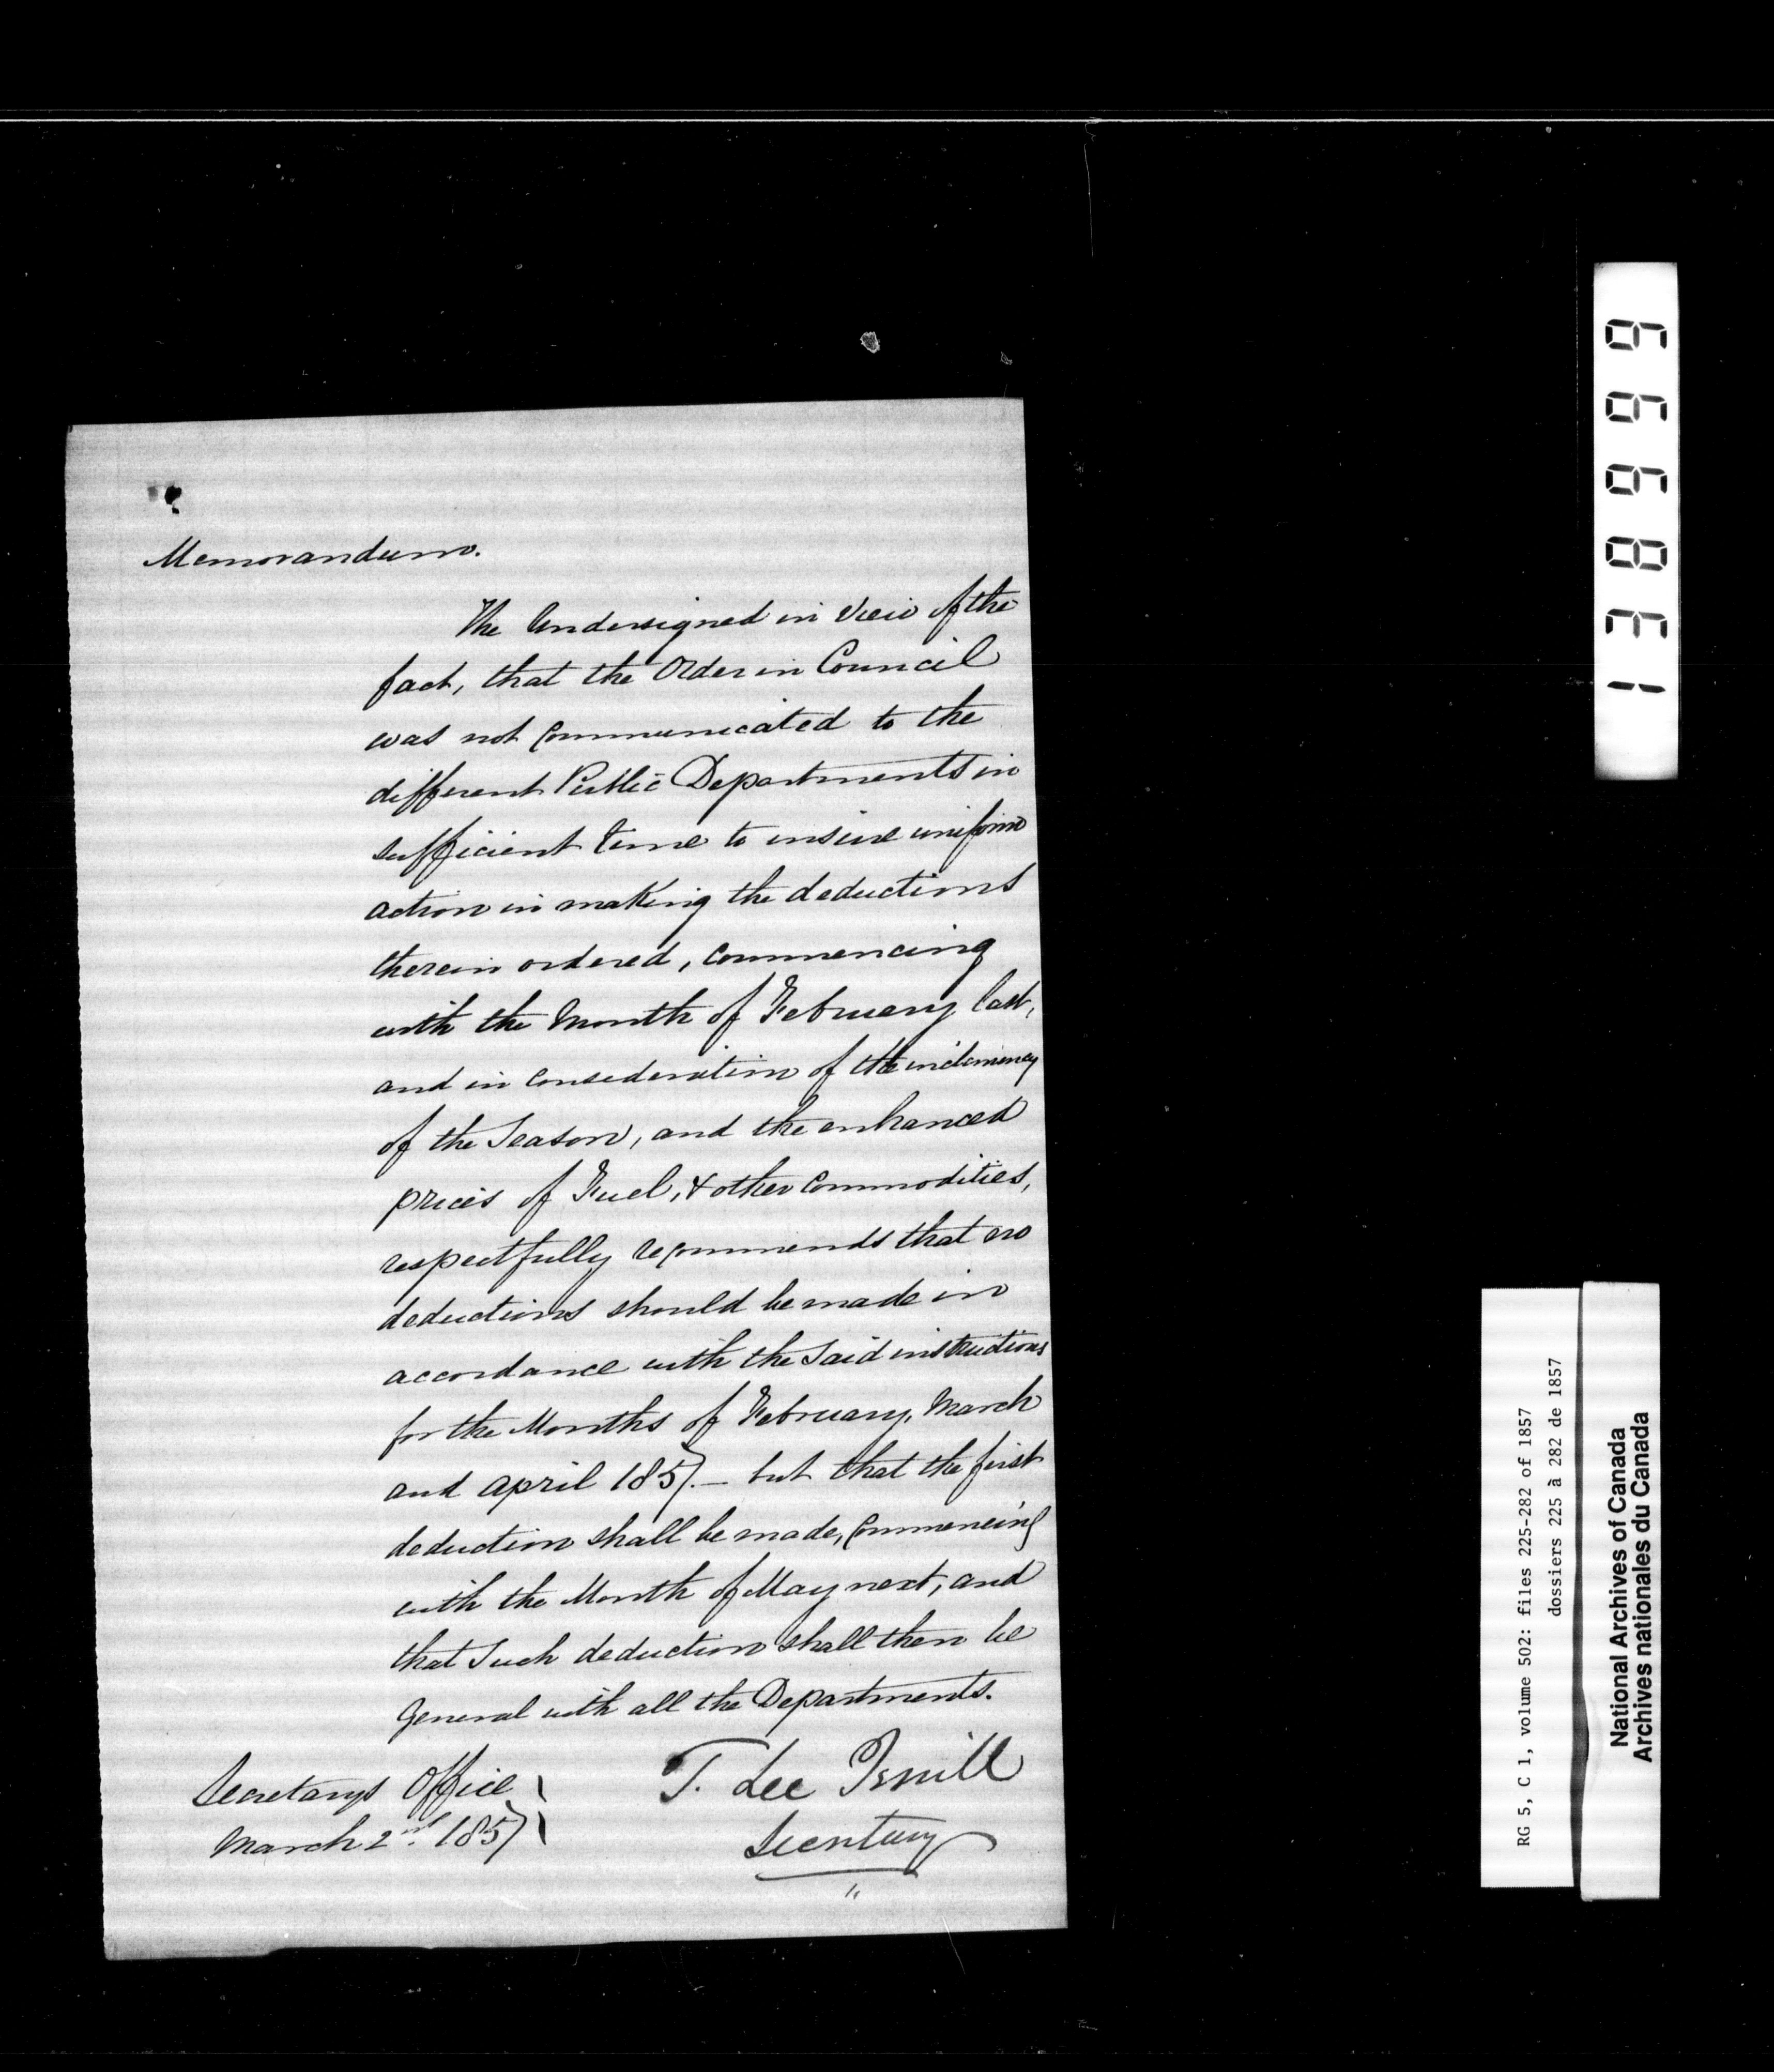 Memorandum.
The Undersigned in view of the
fact, that the Order in Council
was not communicated to the
different Public Departments in
sufficient time to insure uniform
action in making the deductions
therein ordered, commencing
with the Month of February last,
and in consideration of the inclemency
of the Season, and the enhanced
prices of Fuel, & other Commodities,
respectfully recommends that no
deductions should be made in
accordance with the Said instructions
for the Months of February, March
and April 1857. — but that the first
deduction shall be made, Commencing
with the Month of May next, and
that Such deduction shall then be
General with all the Departments.
T. Lee Terrill
Secretary
Secretarys Office
March 2nd. 1857
138999
RG 5, C 1, volume 502: files 225-282 of 1857
dossiers 225 à 282 de 1857
National Archives of Canada
Archives nationales du Canada